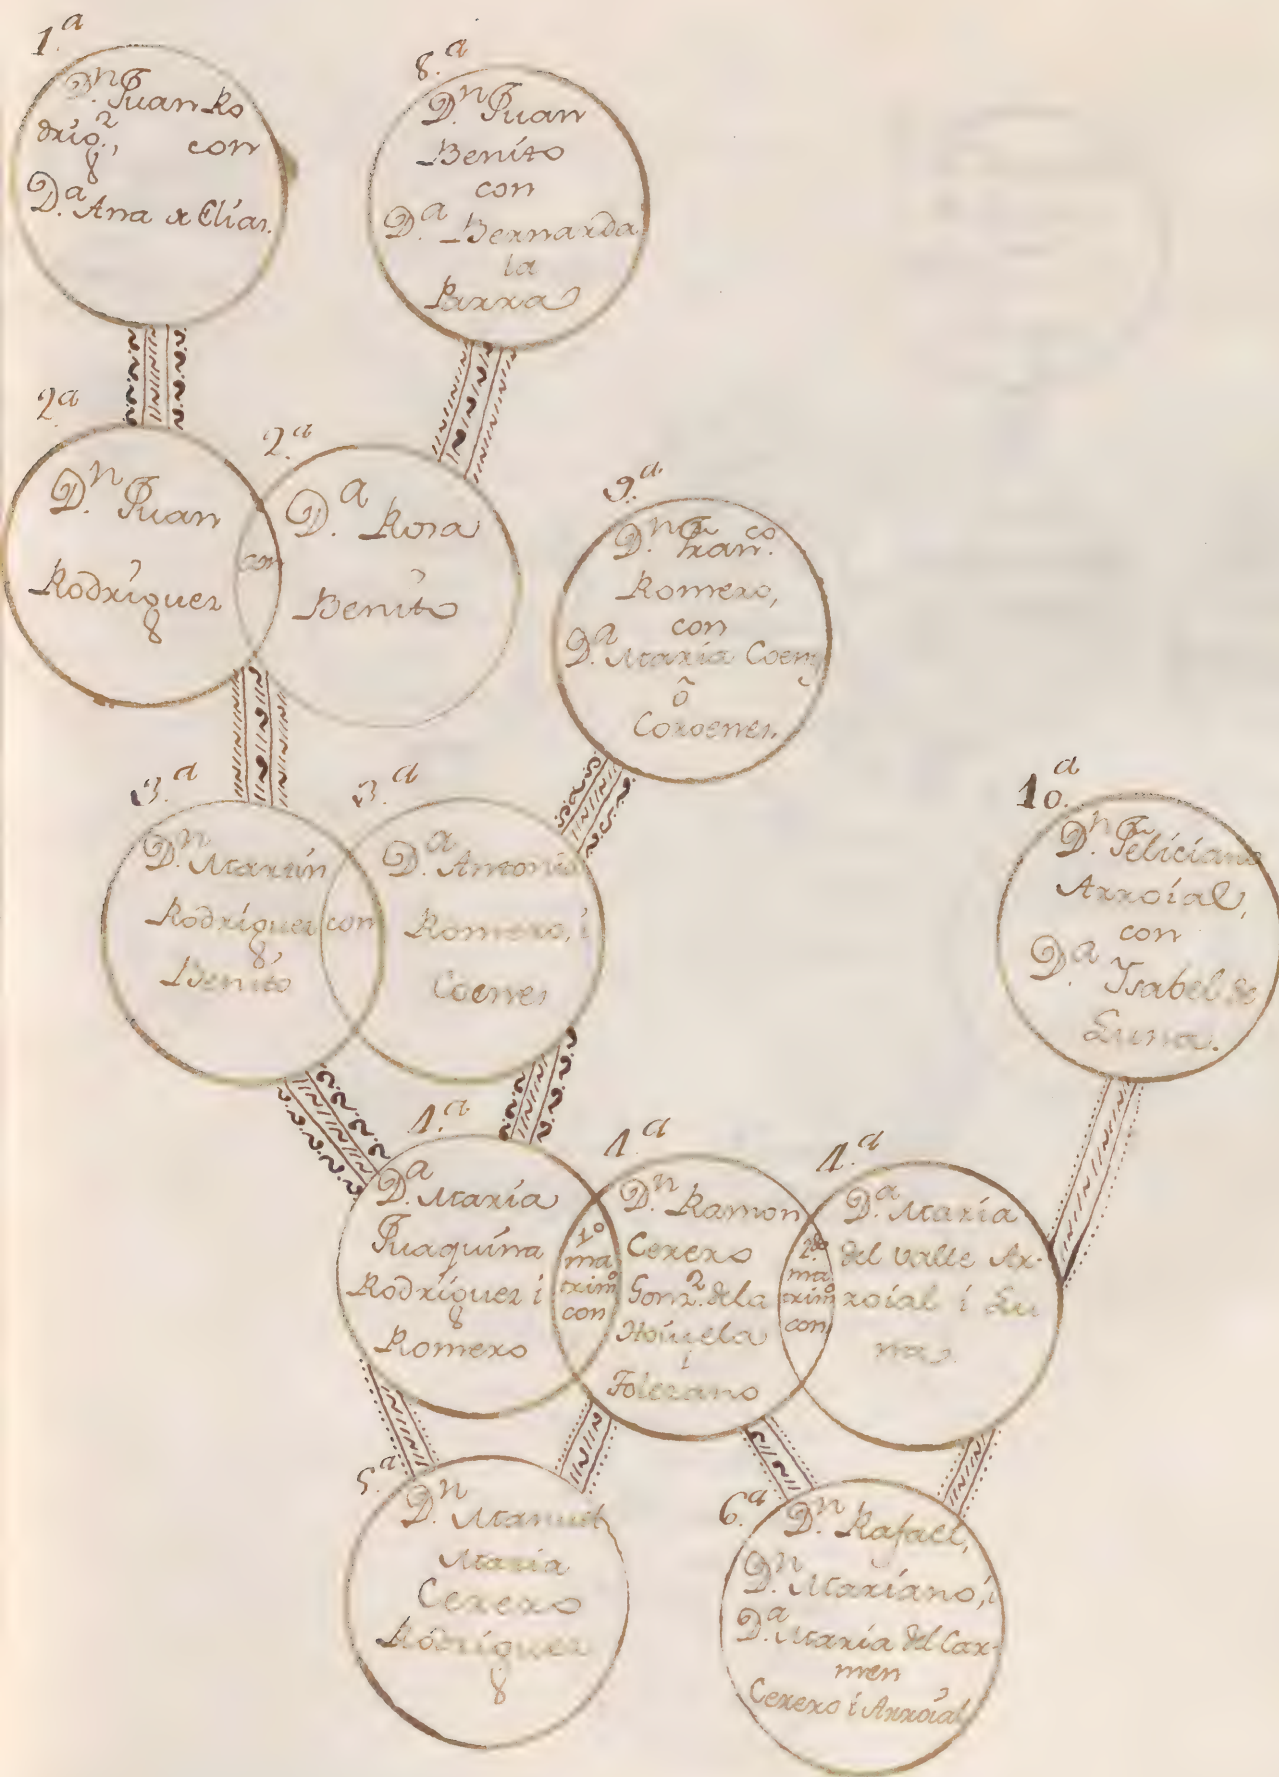 1.ª
D.ⁿ Juan Ro
drig.², con
D.ª Ana de Elias.
8.ª
D.ⁿ Juan
Benito
con
D.ª Bernarda
la
Parra
2ª
D.ⁿ Juan
Rodriguez
con
2.ª
D.ª Rosa
Benito
9.ª
D.ⁿ Fran.co
Romero,
con
D.ª Maria Coen
ô
Coroenes.
3.ª
D.ⁿ Martin
Rodriguez
Benito
con
3.ª
D.ª Antonia
Romero, i
Coenes
10.ª
D.ⁿ Feliciano
Arroial,
con
D.ª Ysabel de
Luna.
4.ª
D.ª Maria
Juaquina
Rodriguez i
Romero
1º
ma
trimº
con
4.ª
D.ⁿ Ramon
Cerero
Gonz.² de la
i
Tolezano
2.do
ma
trimº
con
4.ª
D.ª Maria
del Valle Ar-
roial i Lu
na
5.ª
D.ⁿ Manuel
Maria
Cerero
Rodriguez
6.ª
D.ⁿ Rafael,
D.ⁿ Mariano, i
D.ª Maria del Car-
men
Cerero i Arroial